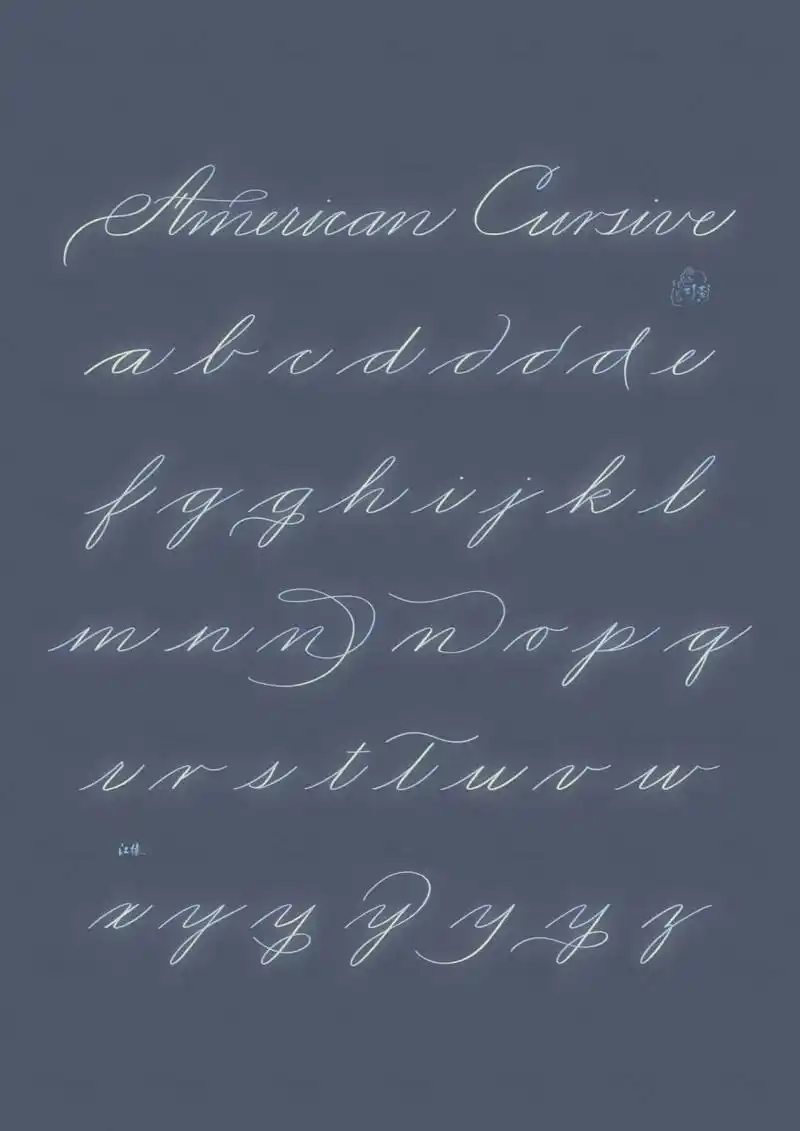 American Cursive
a b c d d d d e
f g g h i j k l
m n n n o p q
r r s t t u v w
x y y y y y z